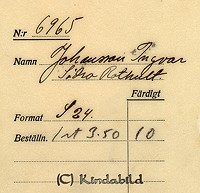 N:r 6965
Namn Johansson Ingvar
Södra Rothult
Färdigt
Format S 24.
Beställn. 1 st 3.50 10
(C) Kindabild